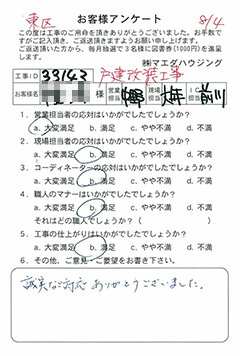 東区
お客様アンケート
8/4
この度は工事のご用命を頂きありがとうございました。お手数で
すがご記入頂き、ご返送頂きますようお願い申し上げます。
ご返送頂いた方から、毎月抽選で3名様に図書券(1000円)を進呈
します。
㈱マエダハウジング
工事ID 33163 戸建改装工事
お客様名 様 営業担当 現場担当 前川
1. 営業担当者の応対はいかがでしたでしょうか?
a. 大変満足 b. 満足 c. やや不満 d. 不満
2. 現場担当者の応対はいかがでしたでしょうか?
a. 大変満足 b. 満足 c. やや不満 d. 不満
3. コーディネーターの応対はいかがでしたでしょうか?
a. 大変満足 b. 満足 c. やや不満 d. 不満
4. 職人のマナーはいかがでしたでしょうか?
a. 大変満足 b. 満足 c. やや不満 d. 不満
それはどの職人でしょうか? ( )
5. 工事の仕上がりはいかがでしたでしょうか?
a. 大変満足 b. 満足 c. やや不満 d. 不満
6. その他、ご意見・ご要望をお書き下さい。
誠実な対応 ありがとうございました。